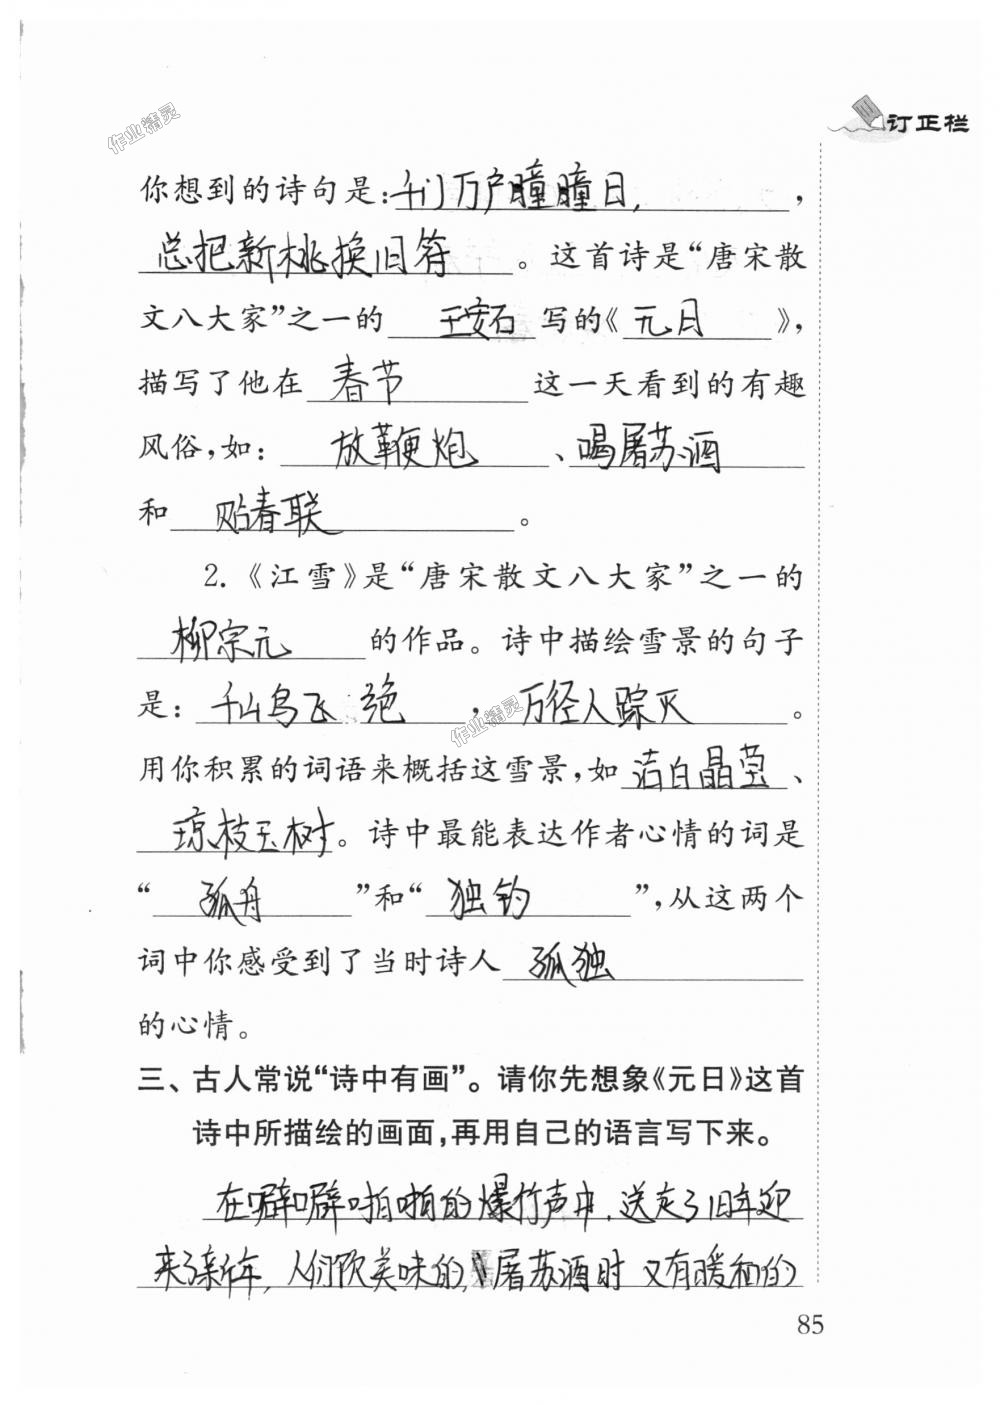 作业精灵
订正栏
你想到的诗句是:千门万户瞳瞳日,，
总把新桃换旧符。这首诗是“唐宋散
文八大家”之一的 王安石 写的《元日》，
描写了他在 春节 这一天看到的有趣
风俗，如： 放鞭炮 、喝屠苏酒
和 贴春联 。
2.《江雪》是“唐宋散文八大家”之一的
柳宗元 的作品。诗中描绘雪景的句子
是：千山鸟飞绝，万径人踪灭。
作业精灵
用你积累的词语来概括这雪景，如 洁白晶莹、
琼枝玉树。诗中最能表达作者心情的词是
“孤舟”和“独钓”，从这两个
词中你感受到了当时诗人 孤独
的心情。
三、古人常说“诗中有画”。请你先想象《元日》这首
诗中所描绘的画面，再用自己的语言写下来。
在噼噼啪啪的爆竹声中，送走了旧年迎
来了新年，人们饮美味的屠苏酒时 又有暖和的
85